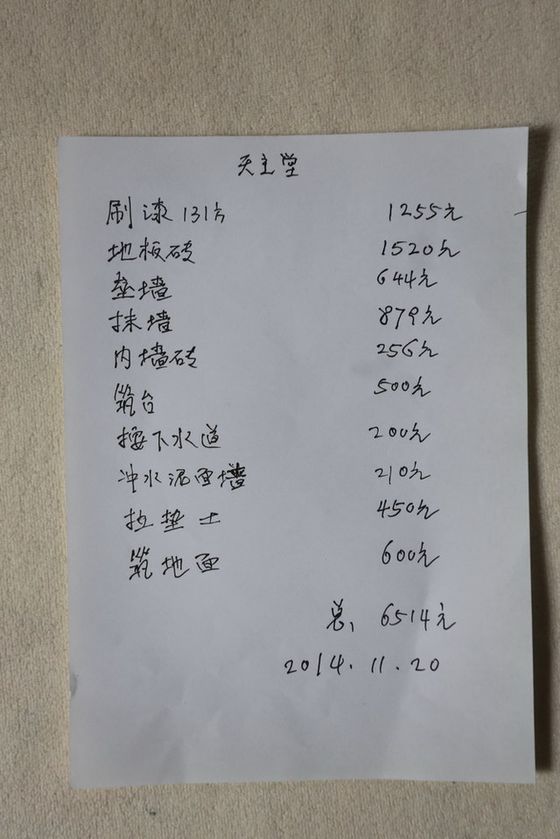 天主堂
刷漆131方 1255元
地板砖 1520元
垒墙 644元
抹墙 879元
内墙砖 256元
筑台 500元
接下水道 200元
冲水泥面墙 210元
拉垫土 450元
筑地面 600元
总, 6514元
2014.11.20